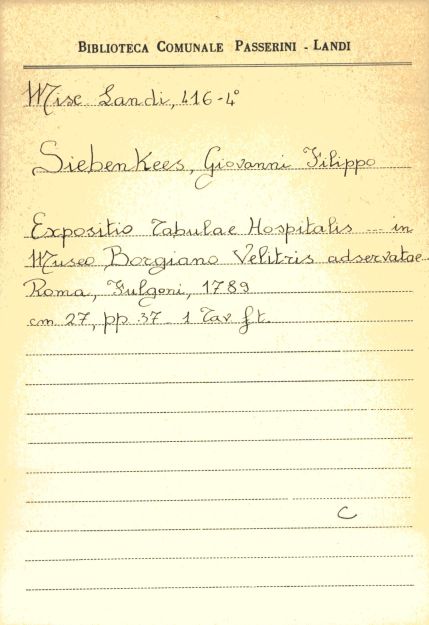 BIBLIOTECA COMUNALE PASSERINI - LANDI
Misc Landi, 416-4°
Siebenkees, Giovanni Filippo
Expositio Tabulae Hospitalis ... in
Museo Borgiano Velitris adservatae
Roma, Fulgoni, 1789
cm 27, pp 37 1 Tav ft.
C